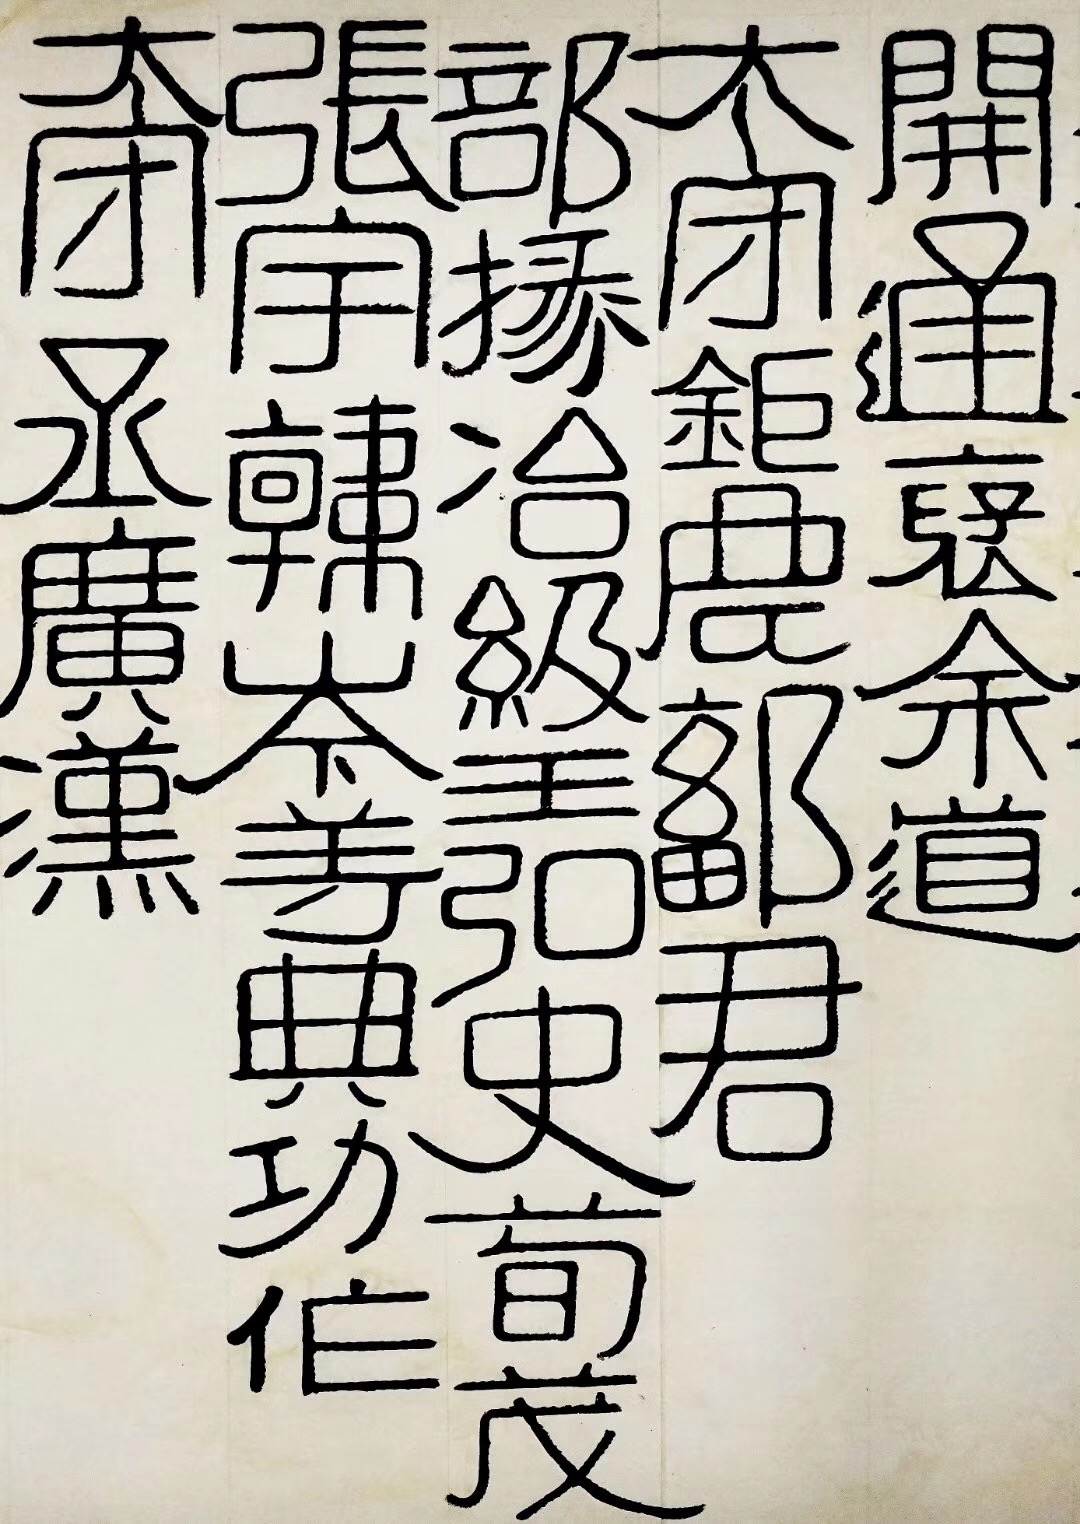 開通褒余道
太守鉅鹿鄐君
部掾冶級王弘史荀茂
張宇韓岑等典功作
太守丞廣漢